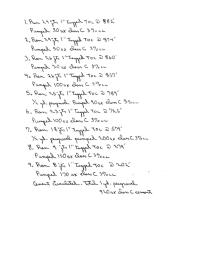 1. Ran 29 jts 1" Tagged TOC @ 882'
Pumped 50 sx class C 3% cc
2. Ran 29 jts 1" Tagged TOC @ 874'
Pumped 50 sx class C 3% cc
3. Ran 28 jts 1" Tagged TOC @ 860'
Pumped 50 sx class C 3% cc
4. Ran 28 jts 1" Tagged TOC @ 857'
Pumped 100 sx class C 3% cc
5. Ran jts 1" Tagged TOC @ 789'
yd. peagravel Pumped 50 sx class C 3% cc
6. Ran jts 1" Tagged TOC @ 765'
Pumped 100 sx class C 3% cc
7. Ran 18 jts 1" Tagged TOC @ 579'
yd. peagravel pumped 200 sx class C 3% cc
8. Ran 9 jts 1" Tagged TOC @ 279'
Pumped 150 sx class C 3% cc
9. Ran 8 jts 1" Tagged TOC @ 202'
Pumped 170 sx class C 3% cc
Cement Circulated. Total 1 yd. peagravel
920 sx class C cement